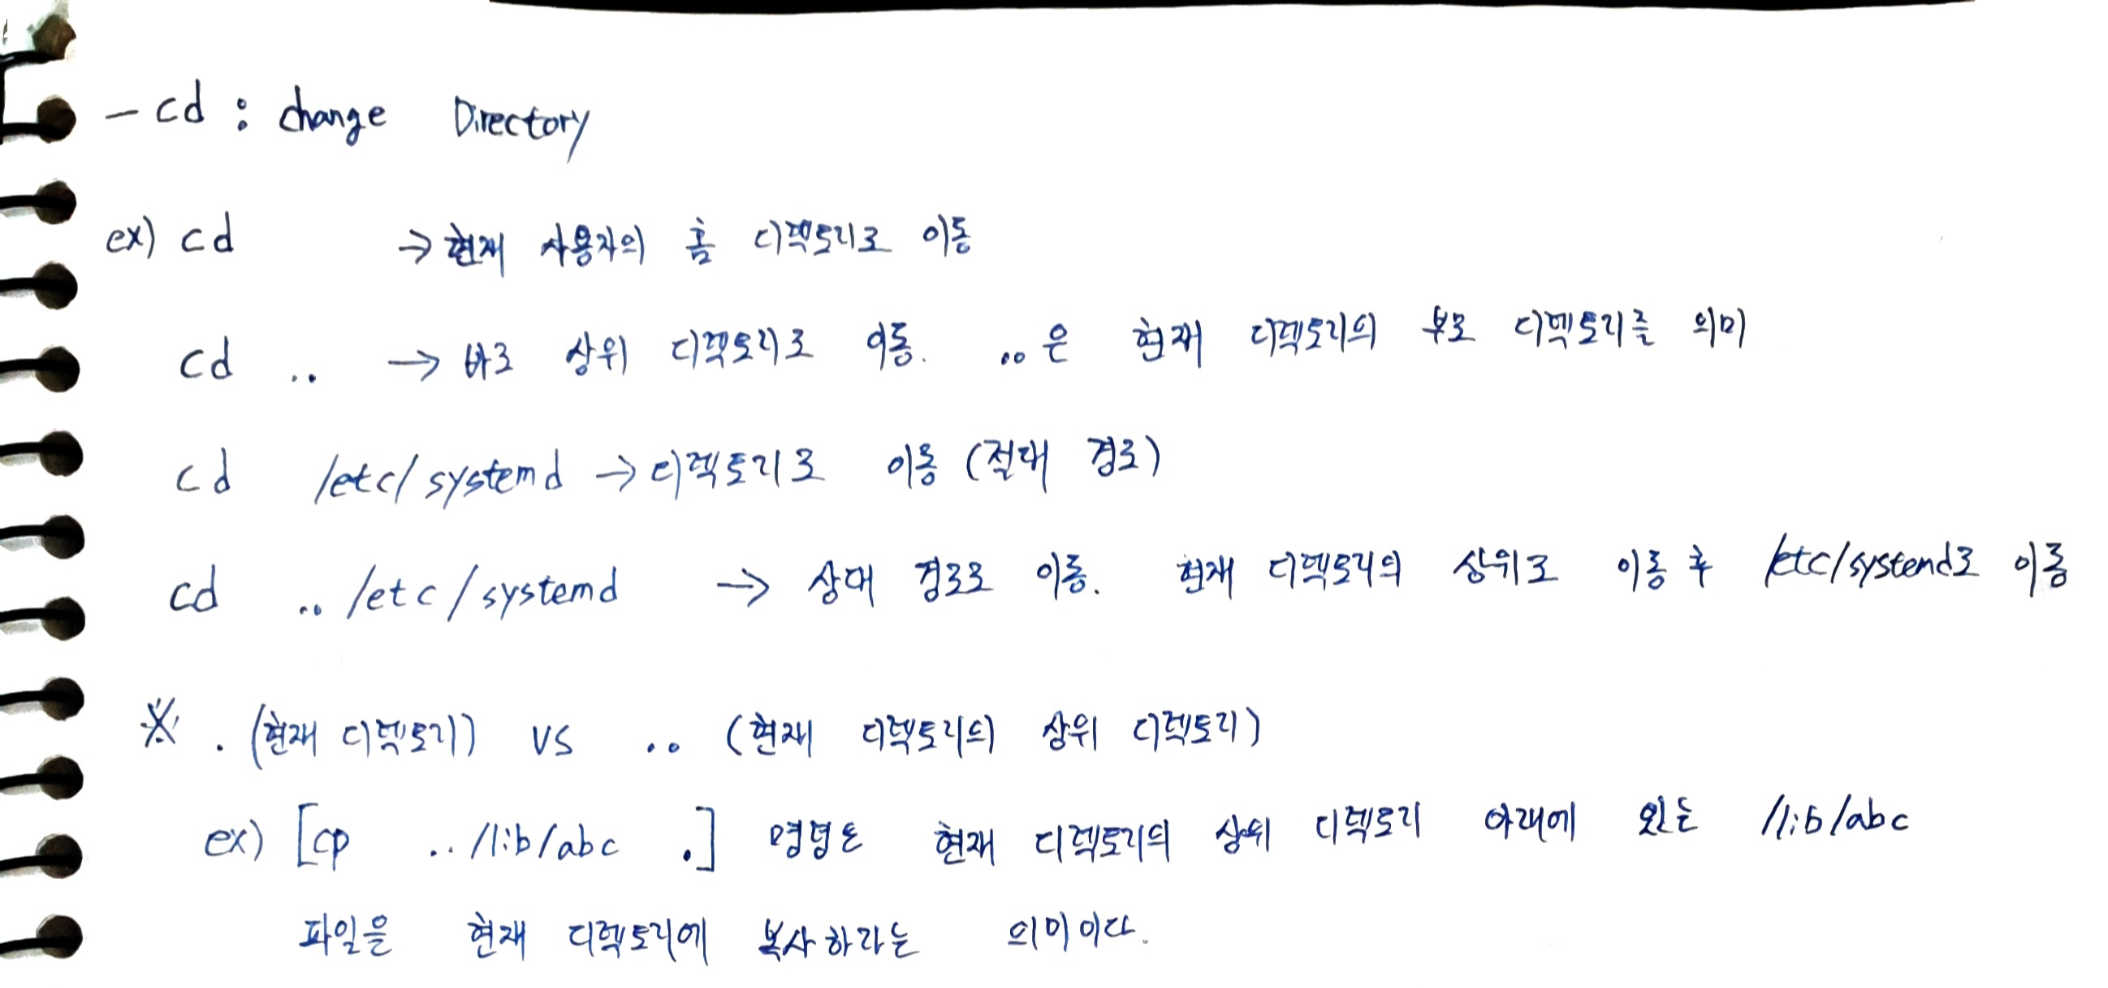 - cd : change Directory
ex) cd → 현재 사용자의 홈 디렉토리로 이동
cd .. → 바로 상위 디렉토리로 이동. ..은 현재 디렉토리의 부모 디렉토리를 의미
cd /etc/systemd → 디렉토리로 이동 (절대 경로)
cd ../etc/systemd → 상대 경로로 이동. 현재 디렉토리의 상위로 이동 후 /etc/systemd로 이동
※ . (현재 디렉토리) vs .. (현재 디렉토리의 상위 디렉토리)
ex) [cp ../lib/abc .] 명령은 현재 디렉토리의 상위 디렉토리 아래에 있는 /lib/abc
파일을 현재 디렉토리에 복사하라는 의미이다.